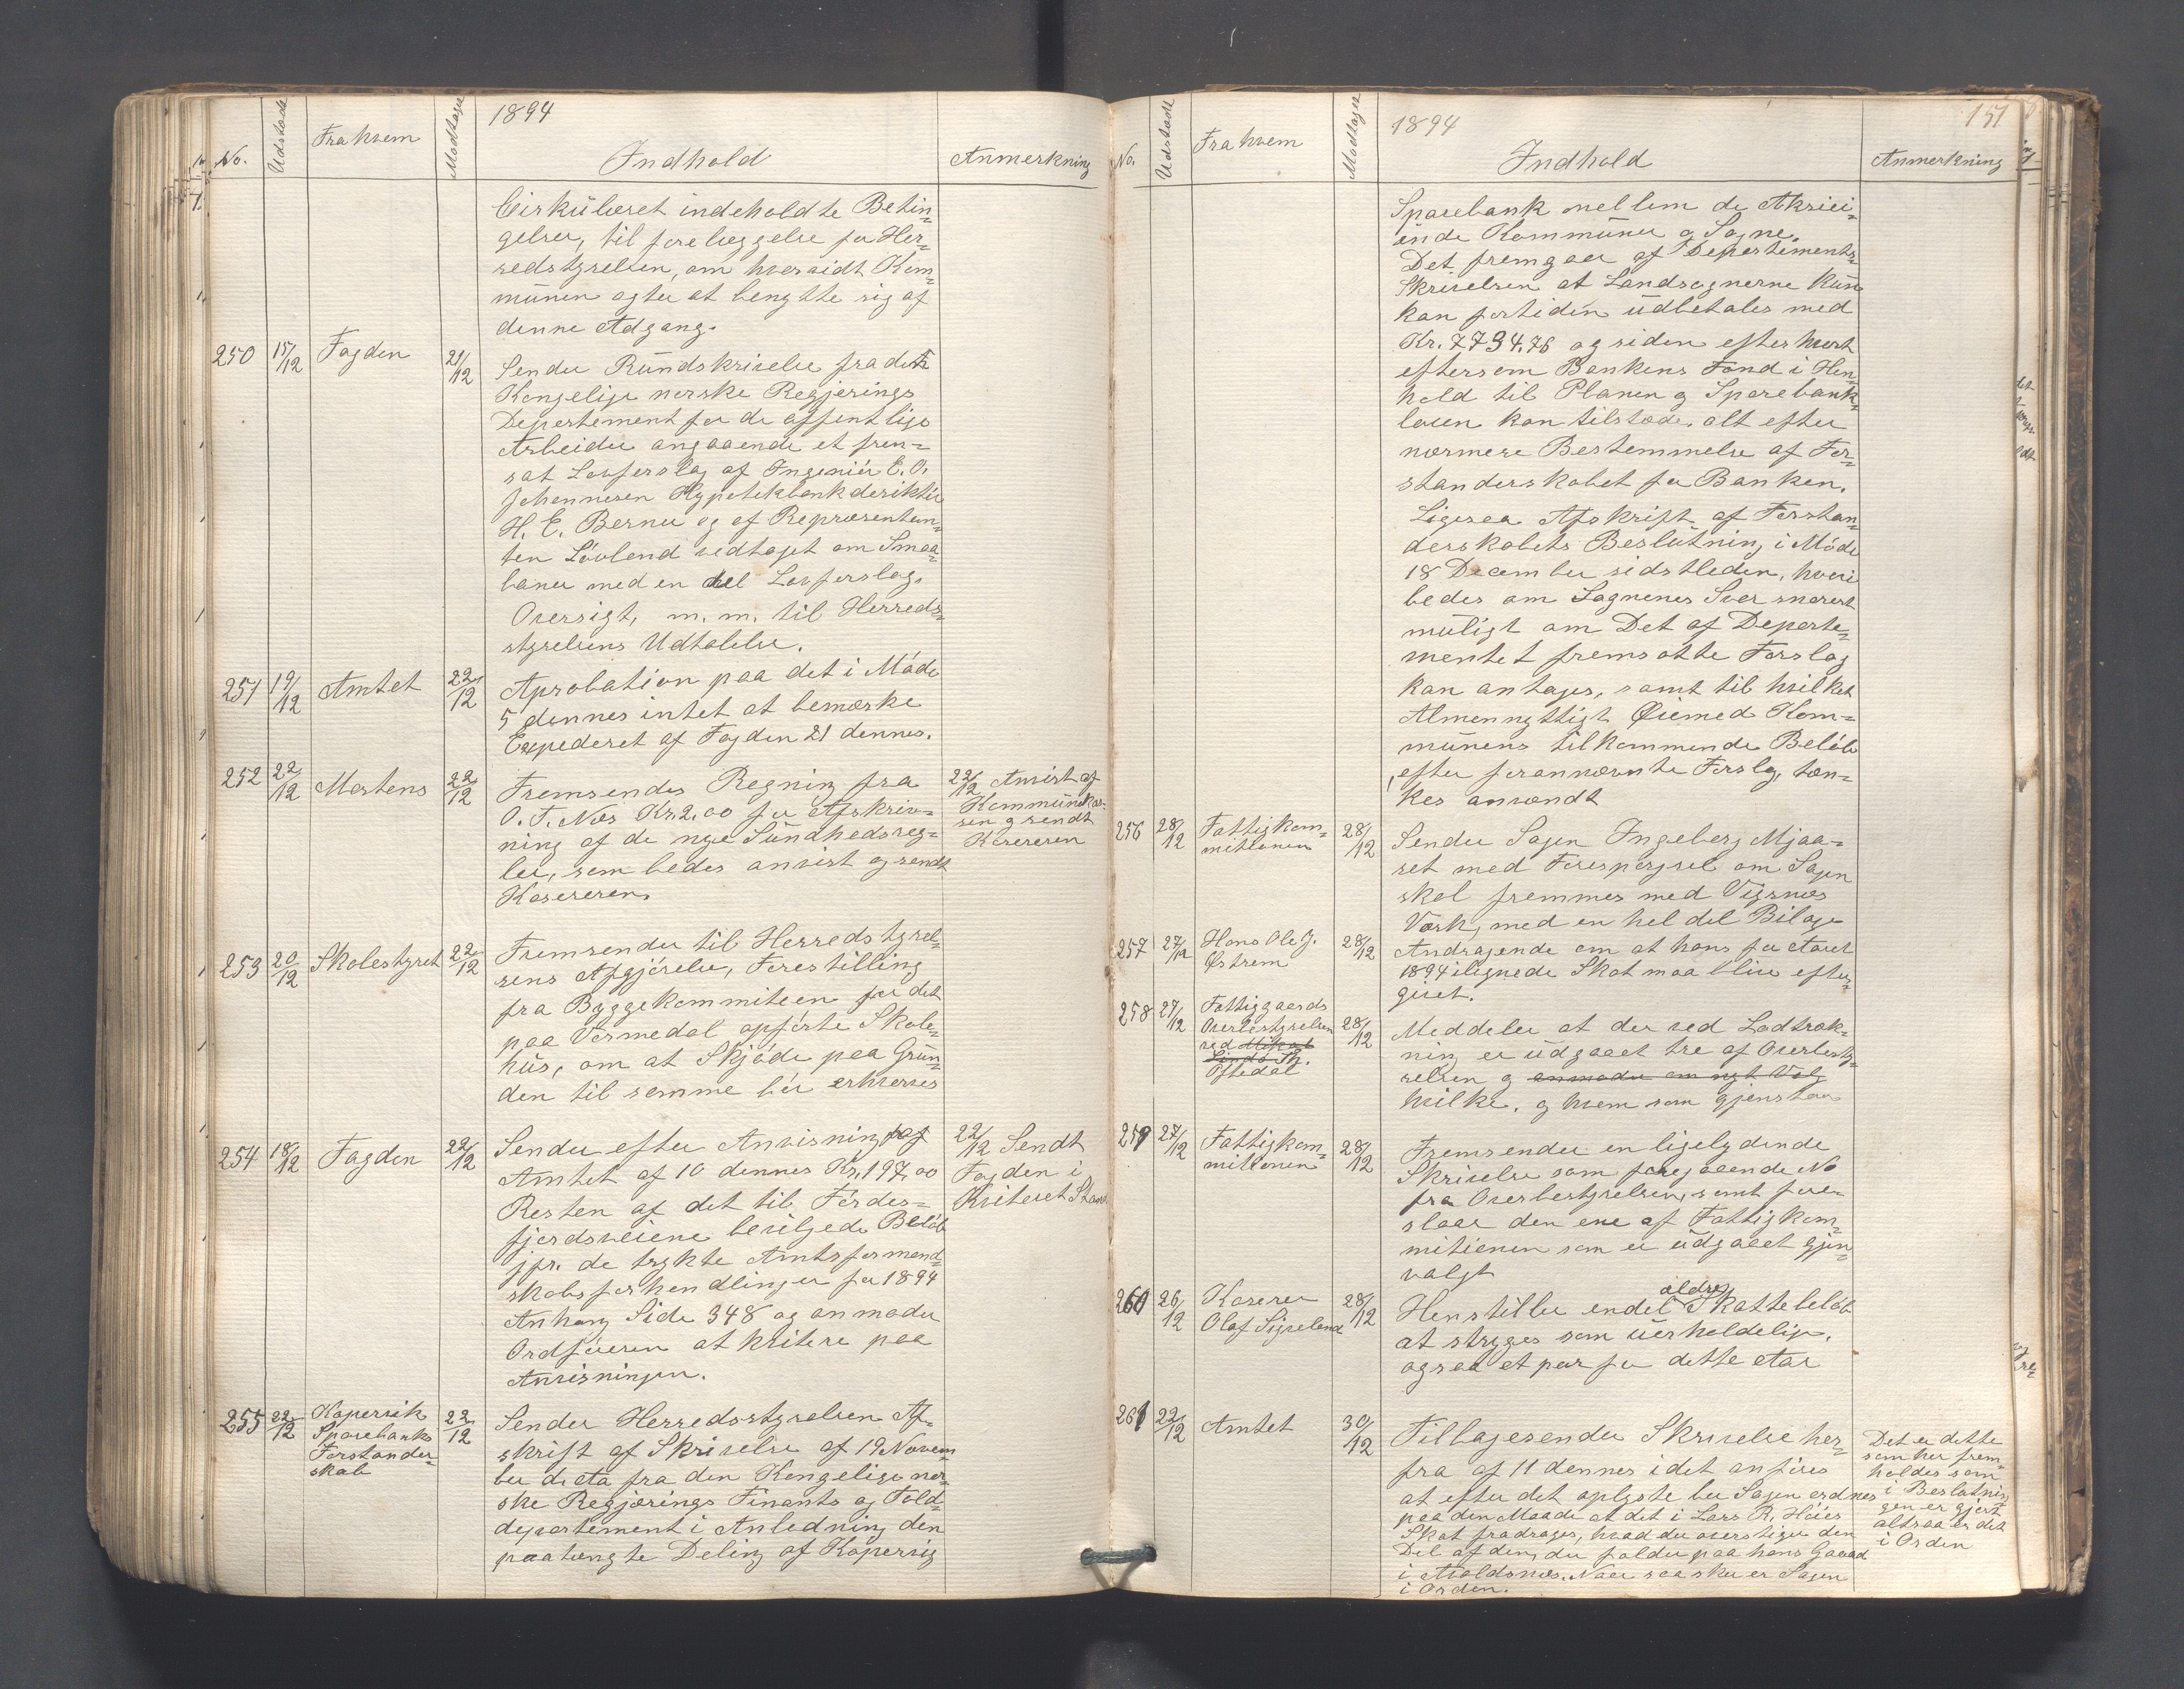 1894
No. Udstædt Fra hvem Modtaget Indhold Anmerkning
Cirkulæret indeholdte Betin-
gelser, til forelæggelse for Her-
redstyrelsen, om hvorvidt Kom-
munen agter at benytte sig af
denne Adgang.
250 15/12 Fogden 21/12 Sender Rundskrivelse fra det
Kongelige norske Regjerings
Departement for de offentlige
Arbeider angaaende et frem-
sat Lovforslag af Ingeniør E. O.
Johannesen Hypotekbankdirektør
H. E. Berner og af Repræsentan-
ten Løvland vedtaget om Smaa-
baner med en del Lovforslag,
Oversigt, m. m. til Herreds-
styrelsens Udtalelse.
251 19/12 Amtet 22/12 Aprobation paa det i Møde
5 dennes intet at bemærke
Expederet af Fogden 21 dennes.
252 22/12 Mortens 22/12 Fremsendes Regning fra
O. T. Næs Kr. 2.00 for Afskriv-
ning af de nye Sundhedsreg-
ler, som bedes anvist og sendt
Kasereren.
22/12 Anvist af
Kommunekas-
sen og sendt
Kasereren
253 20/12 Skolestyret 22/12 Fremsender til Herredstyrel-
sens Afgjørelse, Forestilling
fra Byggekommiteen for det
paa Vormedal opførte Skole-
hus, om at Skjøde paa Grun-
den til samme bør erhverves
254 18/12 Fogden 22/12 Sender efter Anvisning af
Amtet af 10 dennes Kr. 197,00
Resten af det til Førdes-
fjordsveiene bevilgede Beløb
jfr. de trykte Amtsformand-
skabsforhandlinger for 1894
Anhang Side 348 og anmoder
Ordføreren at kvitere paa
Anvisningen.
22/12 Sendt
Fogden i
Kviteret Stand
255 22/12 Kopervik
Sparebanks
Forstander-
skab
22/12 Sender Herredsstyrelsen Af-
skrift af Skrivelse af 19 Novem-
ber d. Aa fra den Kongelige nor-
ske Regjerings Finants og Told-
departement i Anledning den
paatængte Deling af Kopervig
151
1894
No. Udstædt Fra hvem Modtaget Indhold Anmerkning
Sparebank mellem de
Kommuner og Sogne.
Det fremgaar af Departements-
Skrivelsen at Landsognerne Kun
kan fortiden udbetales med
Kr. 7734.76 og siden efterhvert
eftersom Bankens Fond i Hen-
hold til Planen og Sparebank-
loven kan tilstede, alt efter
nærmere Bestemmelse af For-
standerskabet for Banken.
Ligesaa Afskrift af Forstan-
derskabets Beslutning i Møde
18 December sidstleden, hvori
bedes om Sognenes Svar snarest
muligt om Det af Departe-
mentet fremsatte Forslag
kan antages, samt til hvilket
Almennyttigt Øiemed Kom-
munens tilkommende Beløb
efter forannævnte Forslag tæn-
kes anvendt
256 28/12 Fattigkom-
mitionen
28/12 Sender Sagen Ingeborg Mjaa-
set med Forespørgsel om Sagen
skal fremmes med Vigsnes
Værk, med en hel del Bilage
257 27/12 Hans Ole J.
Østrem
28/12 Andragende om at hans for Aaret
1894 ilignede Skat maa blive efter-
givet.
258 27/12 Fattiggaards
Overbestyrelsen
ved
Oftedal
28/12 Meddeler at der ved Lodtræk-
ning er udgaaet tre af Overbesty-
relsen og anmoder om nyt Valg
hvilke, og hvem som gjenstaar
259 27/12 Fattigkom-
mitionen
28/12 Fremsender en ligelydende
Skrivelse som foregaaende No
fra Overbestyrelsen, samt fore-
slaar den ene af Fattigkom-
mitionen som er udgaaet gjen-
valgt
260 26/12 Kaserer
Olaf Sigveland
28/12 Henstiller endel ældre Skattebeløb
at stryges som uerholdelige,
ogsaa et par for dette Aar
261 22/12 Amtet 30/12 Tilbagesender Skrivelse her-
fra af 11 dennes idet anføres
at efter det oplyste bør Sagen ordnes
paa den Maade at det i Lars R. Høies
Skat fradrages, hvad der overstiger den
Del af den, der falder paa hans Gaard
i Avaldsnes. Naar saa sker er Sagen
i Orden.
Det er dette
som her frem-
holdes som
i Beslutnin-
gen er gjort
altsaa er det
i Orden